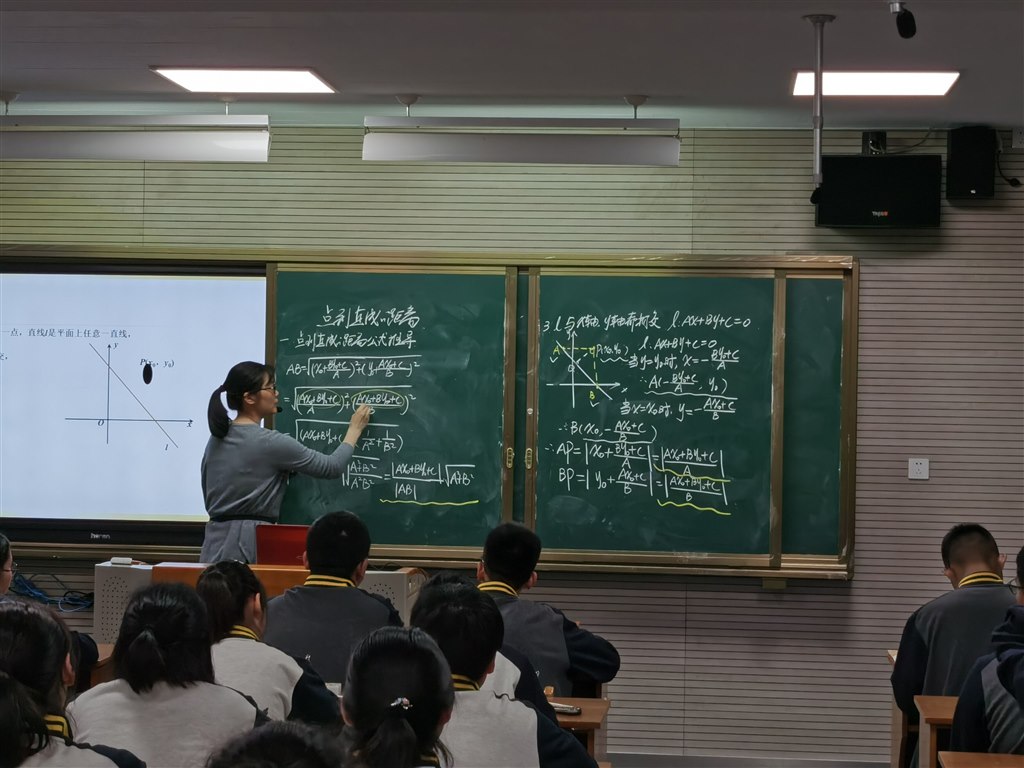 一点，直线l是平面上任意一直线，
P(x₀, y₀)
y
O
x
l
点到直线的距离
一 点到直线的距离公式推导
AB=√((x₀+(By₀+C)/A)²+(y₀+(Ax₀+C)/B)²)
=√(((Ax₀+By₀+C)/A)²+((Ax₀+By₀+C)/B)²)
√((A²+B²)/(A²B²))=|Ax₀+By₀+C|/|AB|·√(A²+B²)
3. l与x轴,y轴都相交 l:Ax+By+C=0
A
P(x₀,y₀)
B
l:Ax+By+C=0
当y=y₀时, x=-(By₀+C)/A
∴A(-(By₀+C)/A, y₀)
当x=x₀时, y=-(Ax₀+C)/B
∴B(x₀, -(Ax₀+C)/B)
∴AP=|x₀+(By₀+C)/A|=|(Ax₀+By₀+C)/A|
BP=|y₀+(Ax₀+C)/B|=|(Ax₀+By₀+C)/B|